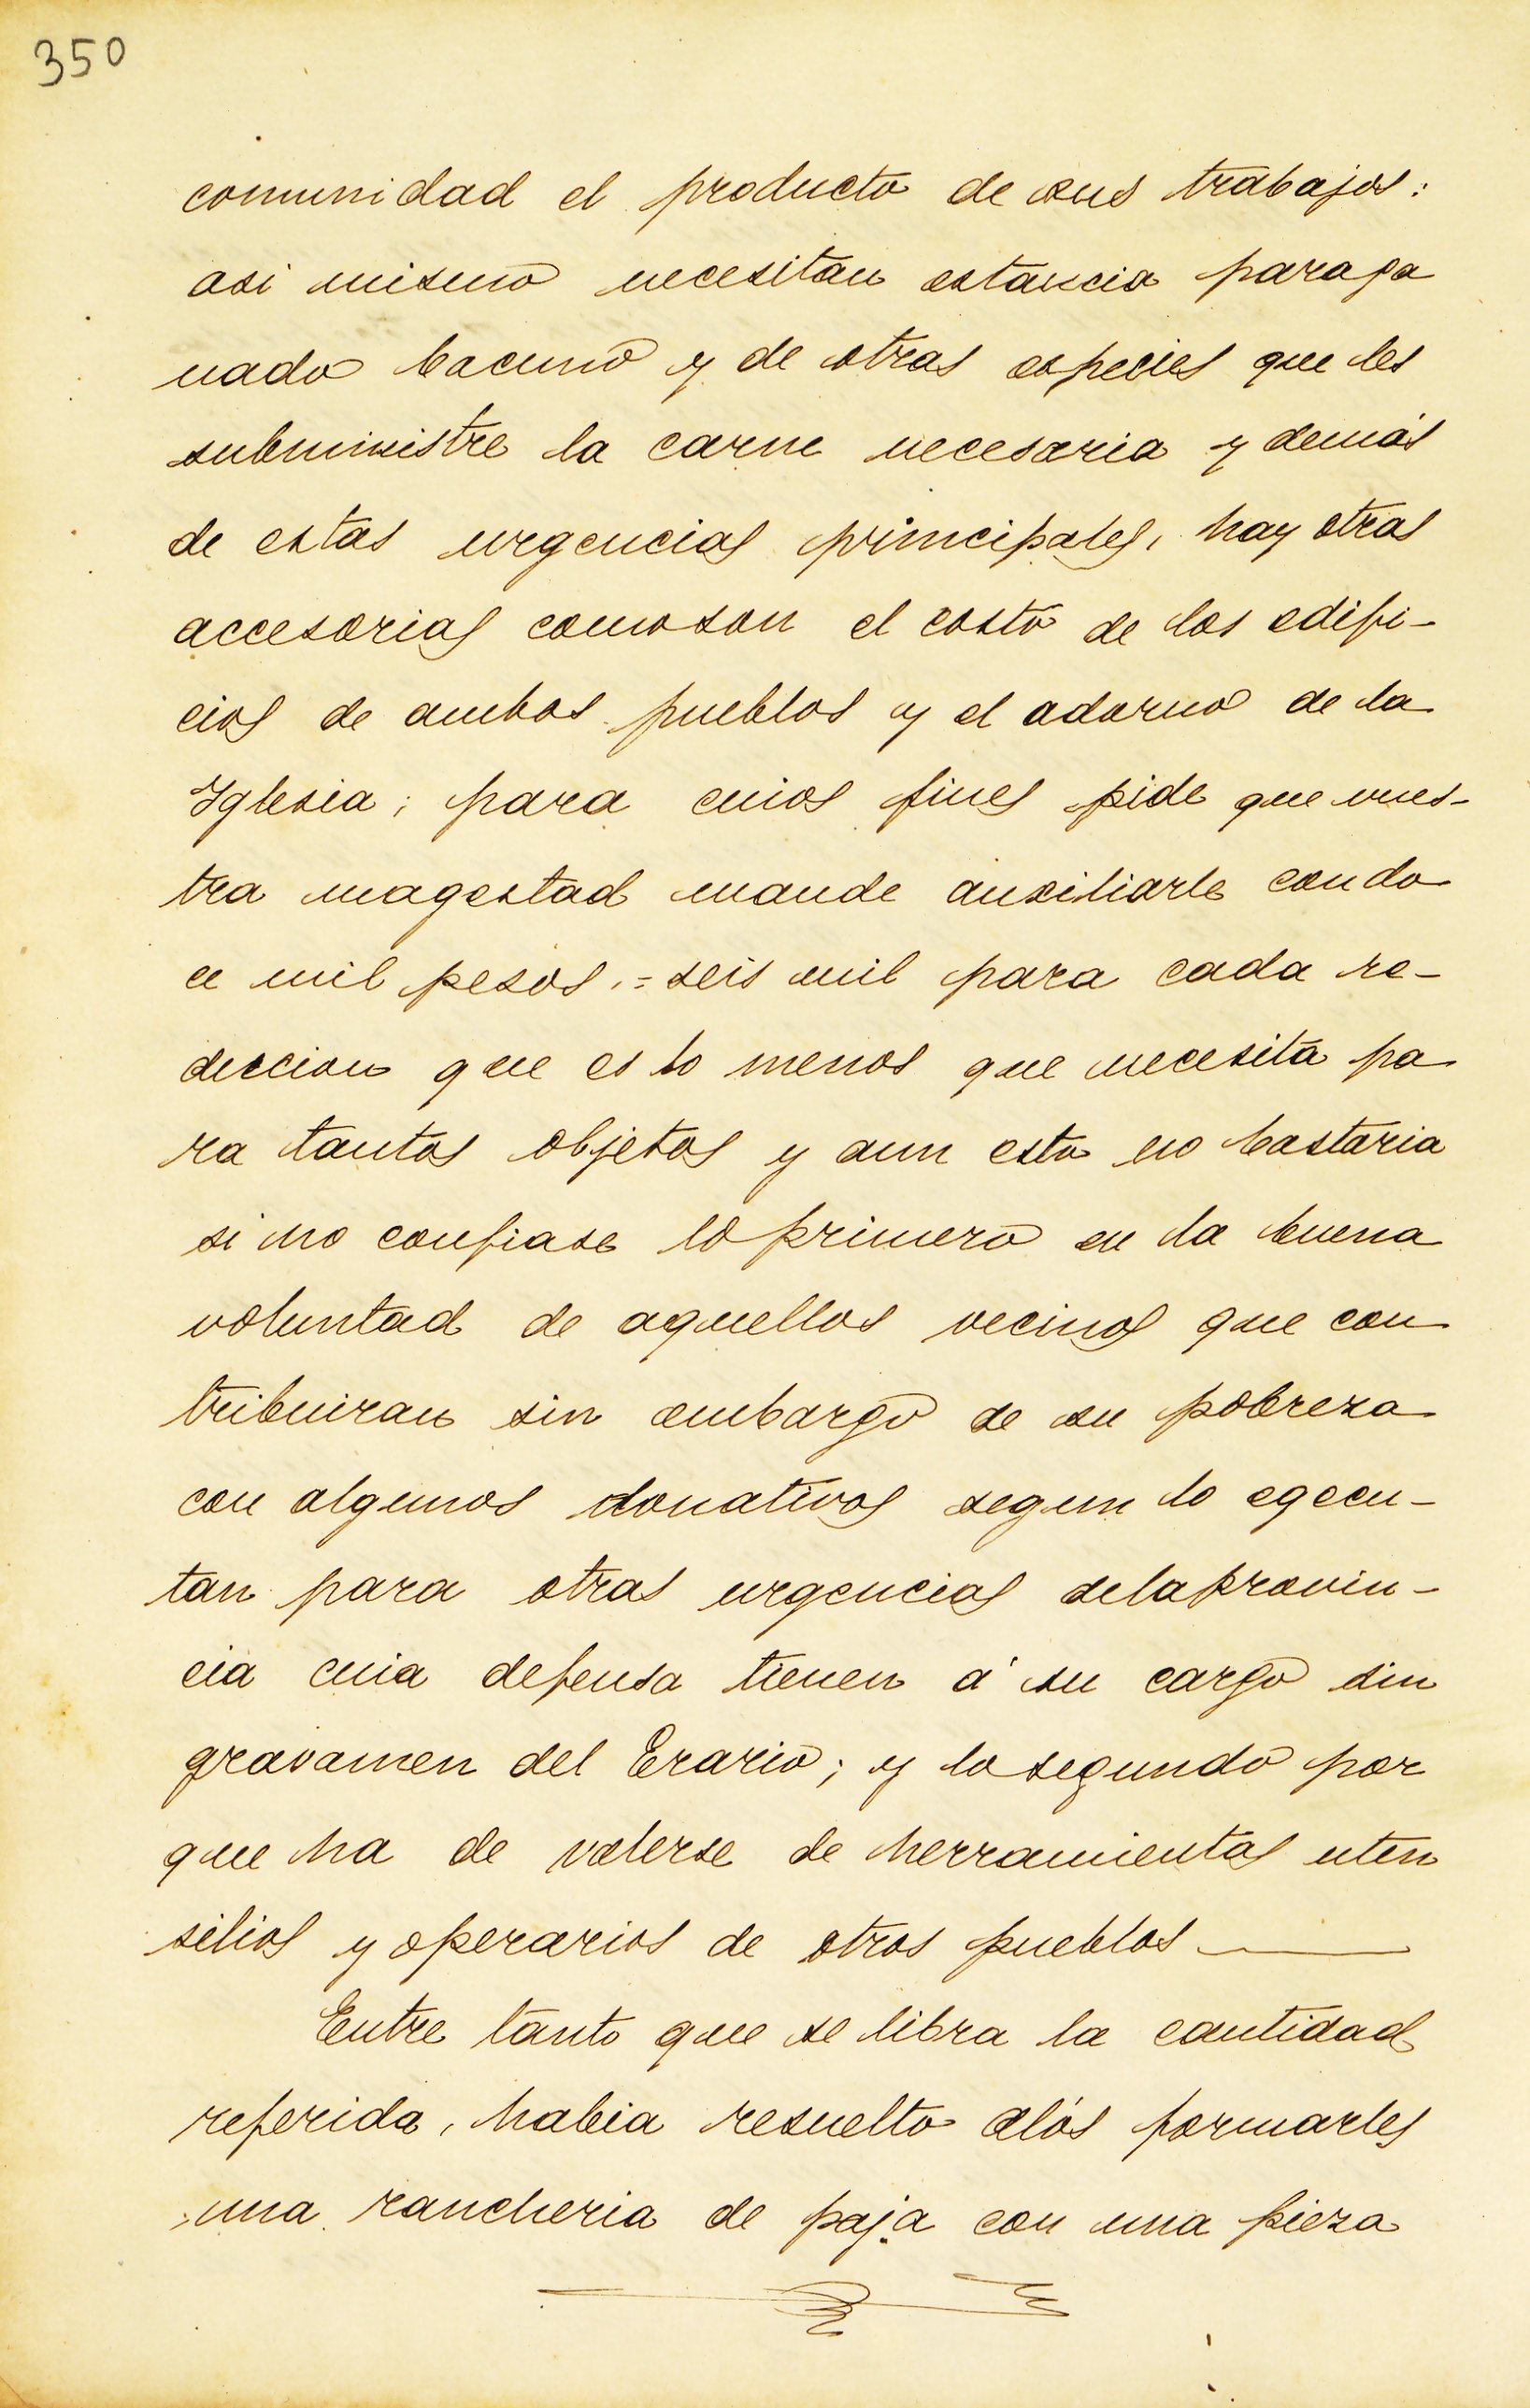 350
comunidad el producto de sus trabajos:
asi mismo necesitan estancia para ga
nado bacuno y de otras especies que les
subministre la carne necesaria y demás
de estas urgencias principales, hay otras
accesorias como son el costo de los edifi-
cios de ambos pueblos y el adorno de la
Iglesia; para cuios fines pide que vues-
tra magestad mande auxiliarle con do
ce mil pesos.=seis mil para cada re-
duccion que es lo menos que necesita pa
ra tantos objetos y aun esto no bastaria
si no confiase lo primero en la buena
voluntad de aquellos vecinos que con
tribuiran sin embargo de su pobreza
con algunos donativos segun lo egecu-
tan para otras urgencias de la provin-
cia cuia defensa tienen á su cargo sin
gravamen del Erario; y lo segundo por
que ha de valerse de herramientas uten
silios y operarios de otros pueblos
Entre tanto que se libra la cantidad
referida, habia resuelto formarles
una rancheria de paja con una pieza